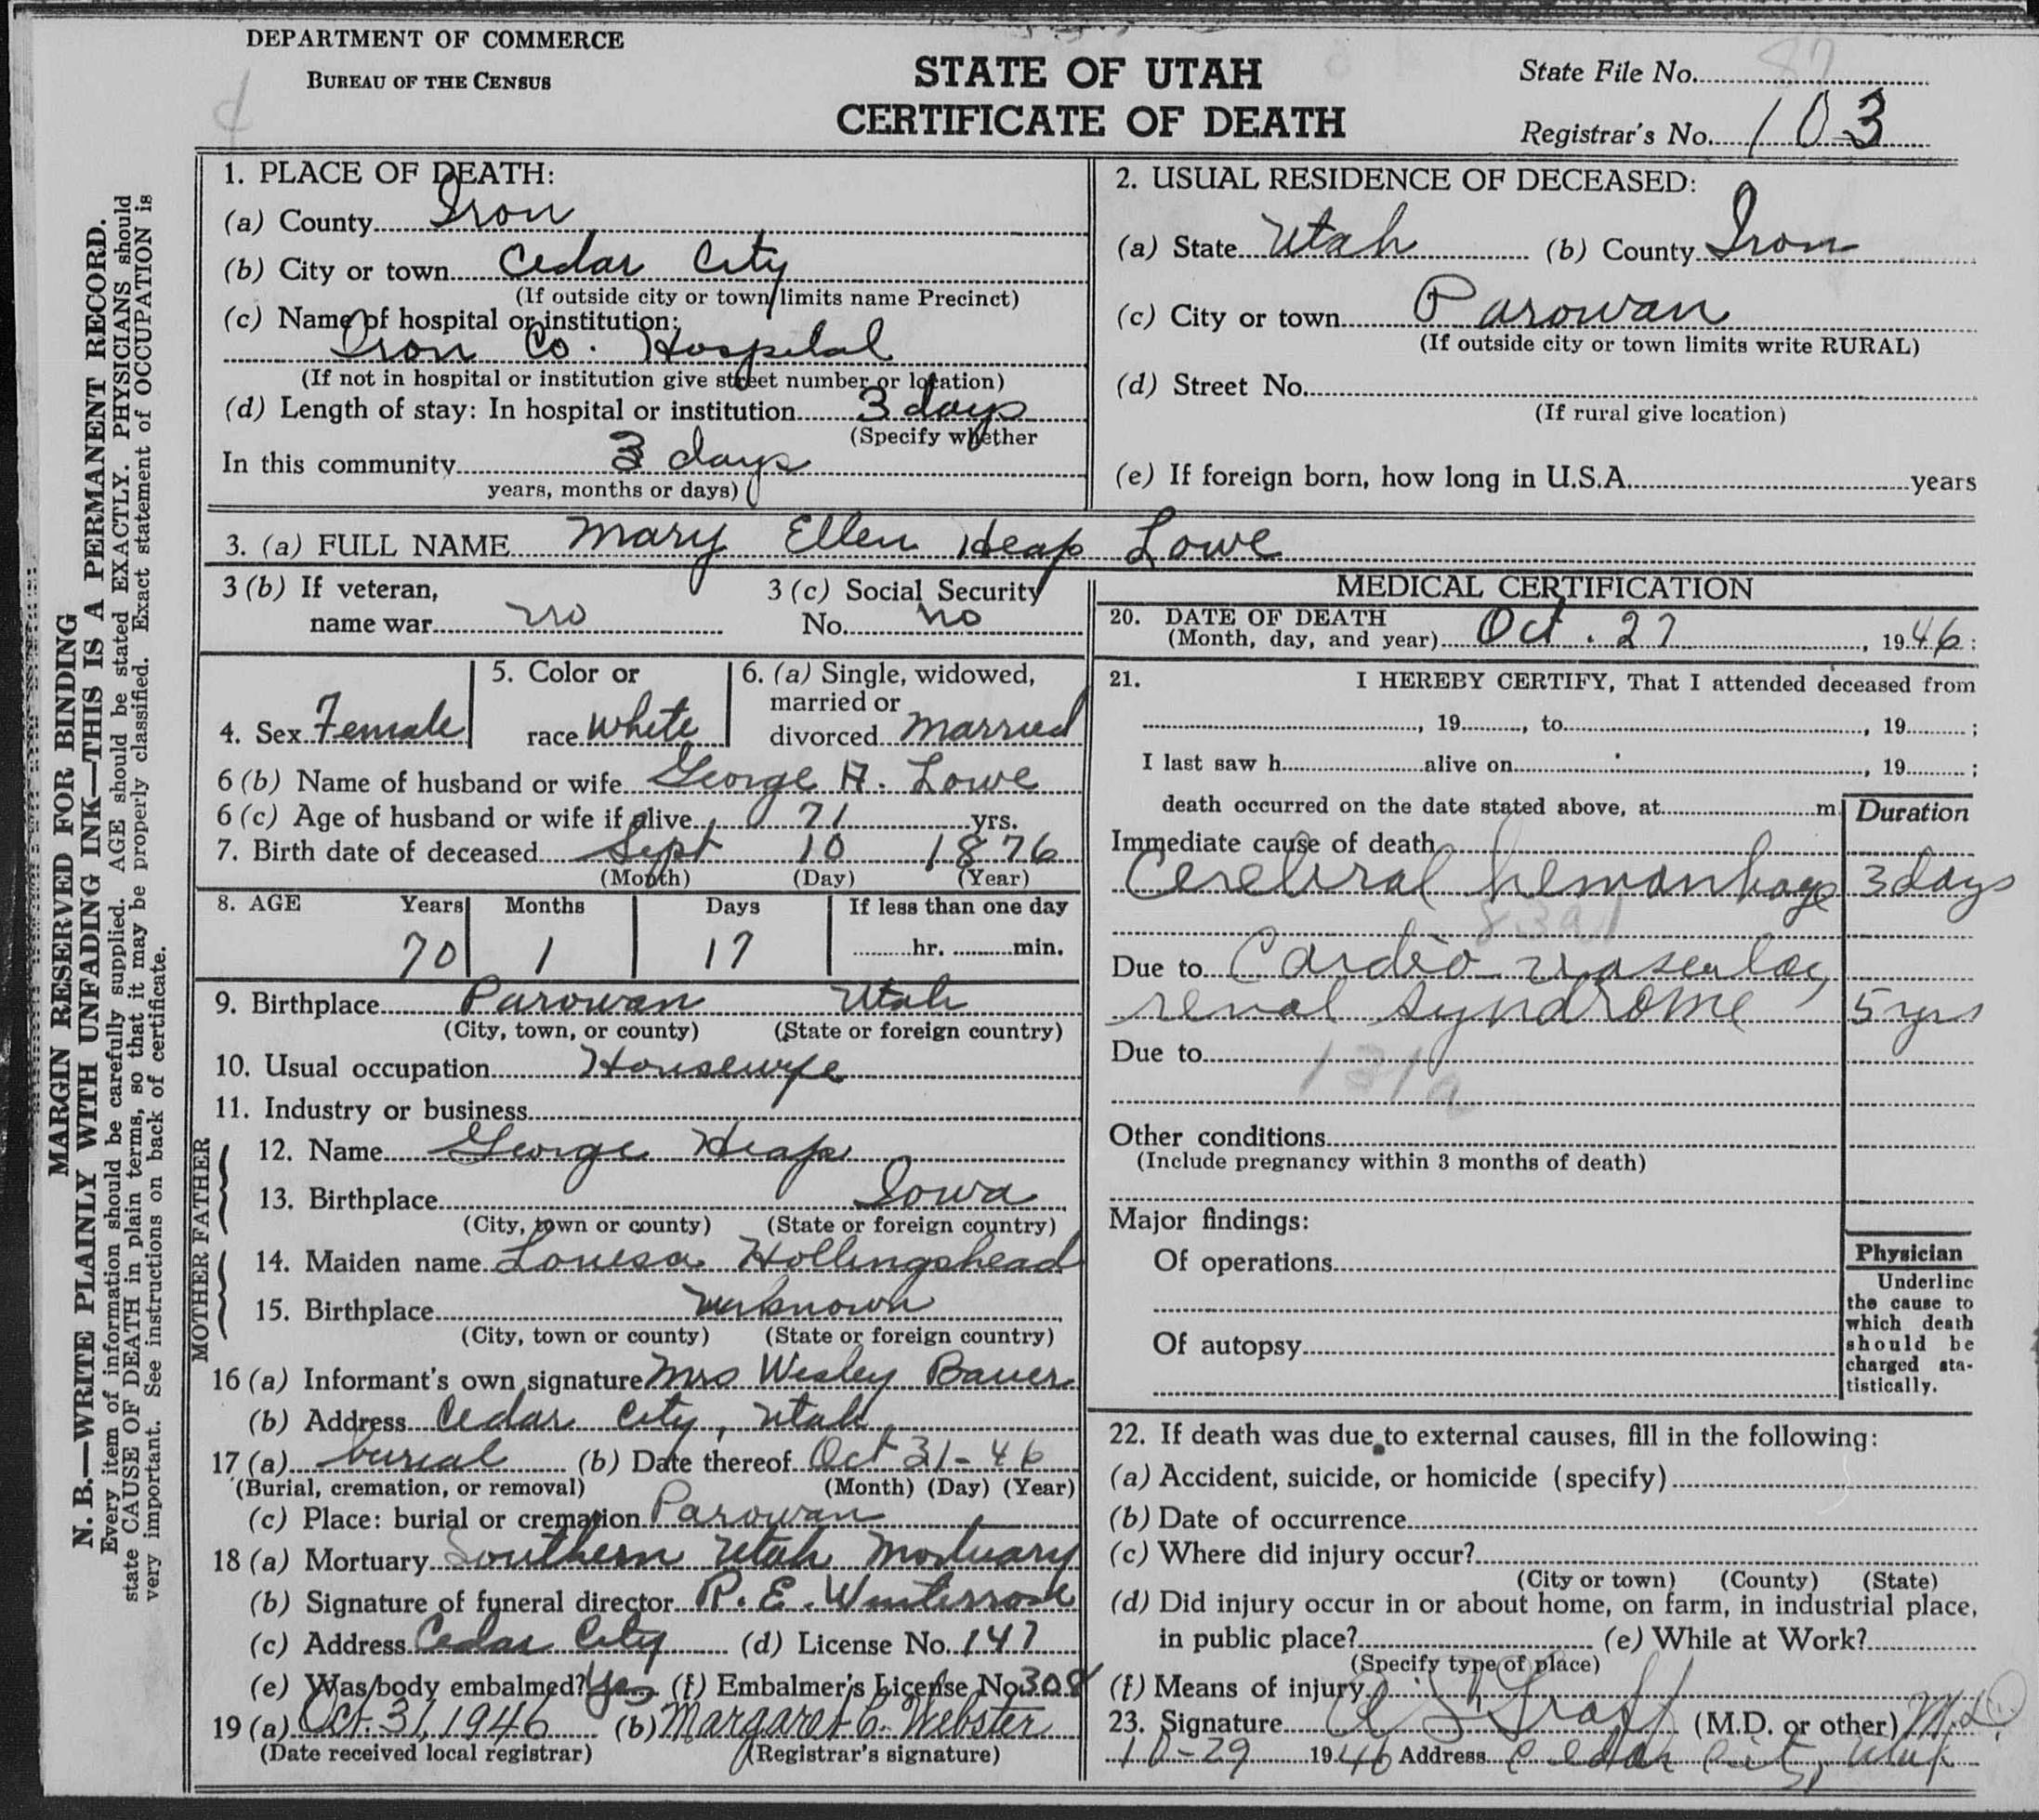 DEPARTMENT OF COMMERCE
BUREAU OF THE CENSUS
STATE OF UTAH
CERTIFICATE OF DEATH
State File No. 87
Registrar's No. 103
MARGIN RESERVED FOR BINDING
N. B.—WRITE PLAINLY WITH UNFADING INK—THIS IS A PERMANENT RECORD.
Every item of information should be carefully supplied. AGE should be stated EXACTLY. PHYSICIANS should
state CAUSE OF DEATH in plain terms, so that it may be properly classified. Exact statement of OCCUPATION is
very important. See instructions on back of certificate.
1. PLACE OF DEATH:
(a) County Iron
(b) City or town Cedar City
(If outside city or town limits name Precinct)
(c) Name of hospital or institution:
Iron Co. Hospital
(If not in hospital or institution give street number or location)
(d) Length of stay: In hospital or institution 3 days
(Specify whether
In this community 3 days
years, months or days)
2. USUAL RESIDENCE OF DECEASED:
(a) State Utah (b) County Iron
(c) City or town Parowan
(If outside city or town limits write RURAL)
(d) Street No.
(If rural give location)
(e) If foreign born, how long in U.S.A. years
3. (a) FULL NAME Mary Ellen Heap Lowe
3 (b) If veteran,
name war no
3 (c) Social Security
No. no
4. Sex Female
5. Color or
race white
6. (a) Single, widowed,
married or
divorced married
6 (b) Name of husband or wife George A. Lowe
6 (c) Age of husband or wife if alive 71 yrs.
7. Birth date of deceased Sept 10 1876
(Month) (Day) (Year)
8. AGE Years Months Days If less than one day
70 1 17 hr. min.
9. Birthplace Parowan Utah
(City, town, or county) (State or foreign country)
10. Usual occupation Housewife
11. Industry or business
FATHER
12. Name George Heap
13. Birthplace Iowa
(City, town or county) (State or foreign country)
MOTHER
14. Maiden name Louesa Hollingshead
15. Birthplace unknown
(City, town or county) (State or foreign country)
16 (a) Informant's own signature Mrs Wesley Bauer
(b) Address Cedar City, Utah
17 (a) burial (b) Date thereof Oct 31-46
(Burial, cremation, or removal) (Month) (Day) (Year)
(c) Place: burial or cremation Parowan
18 (a) Mortuary Southern Utah Mortuary
(b) Signature of funeral director R. E. Winterrose
(c) Address Cedar City (d) License No. 147
(e) Was body embalmed? Yes (f) Embalmer's License No. 308
19 (a) Oct. 31, 1946 (b) Margaret C. Webster
(Date received local registrar) (Registrar's signature)
MEDICAL CERTIFICATION
20. DATE OF DEATH
(Month, day, and year) Oct. 27, 1946:
21. I HEREBY CERTIFY, That I attended deceased from
, 19, to, 19;
I last saw h alive on, 19;
death occurred on the date stated above, at m
Duration
Immediate cause of death
Cerebral hemorrhage 3 days
83a1
Due to Cardio vascular,
renal syndrome 5 yrs
Due to
131a
Other conditions
(Include pregnancy within 3 months of death)
Major findings:
Of operations
Of autopsy
Physician
Underline
the cause to
which death
should be
charged sta-
tistically.
22. If death was due to external causes, fill in the following:
(a) Accident, suicide, or homicide (specify)
(b) Date of occurrence
(c) Where did injury occur?
(City or town) (County) (State)
(d) Did injury occur in or about home, on farm, in industrial place,
in public place? (e) While at Work?
(Specify type of place)
(f) Means of injury
23. Signature Graff (M.D. or other) M.D.
10-29 1946 Address Cedar City, Utah